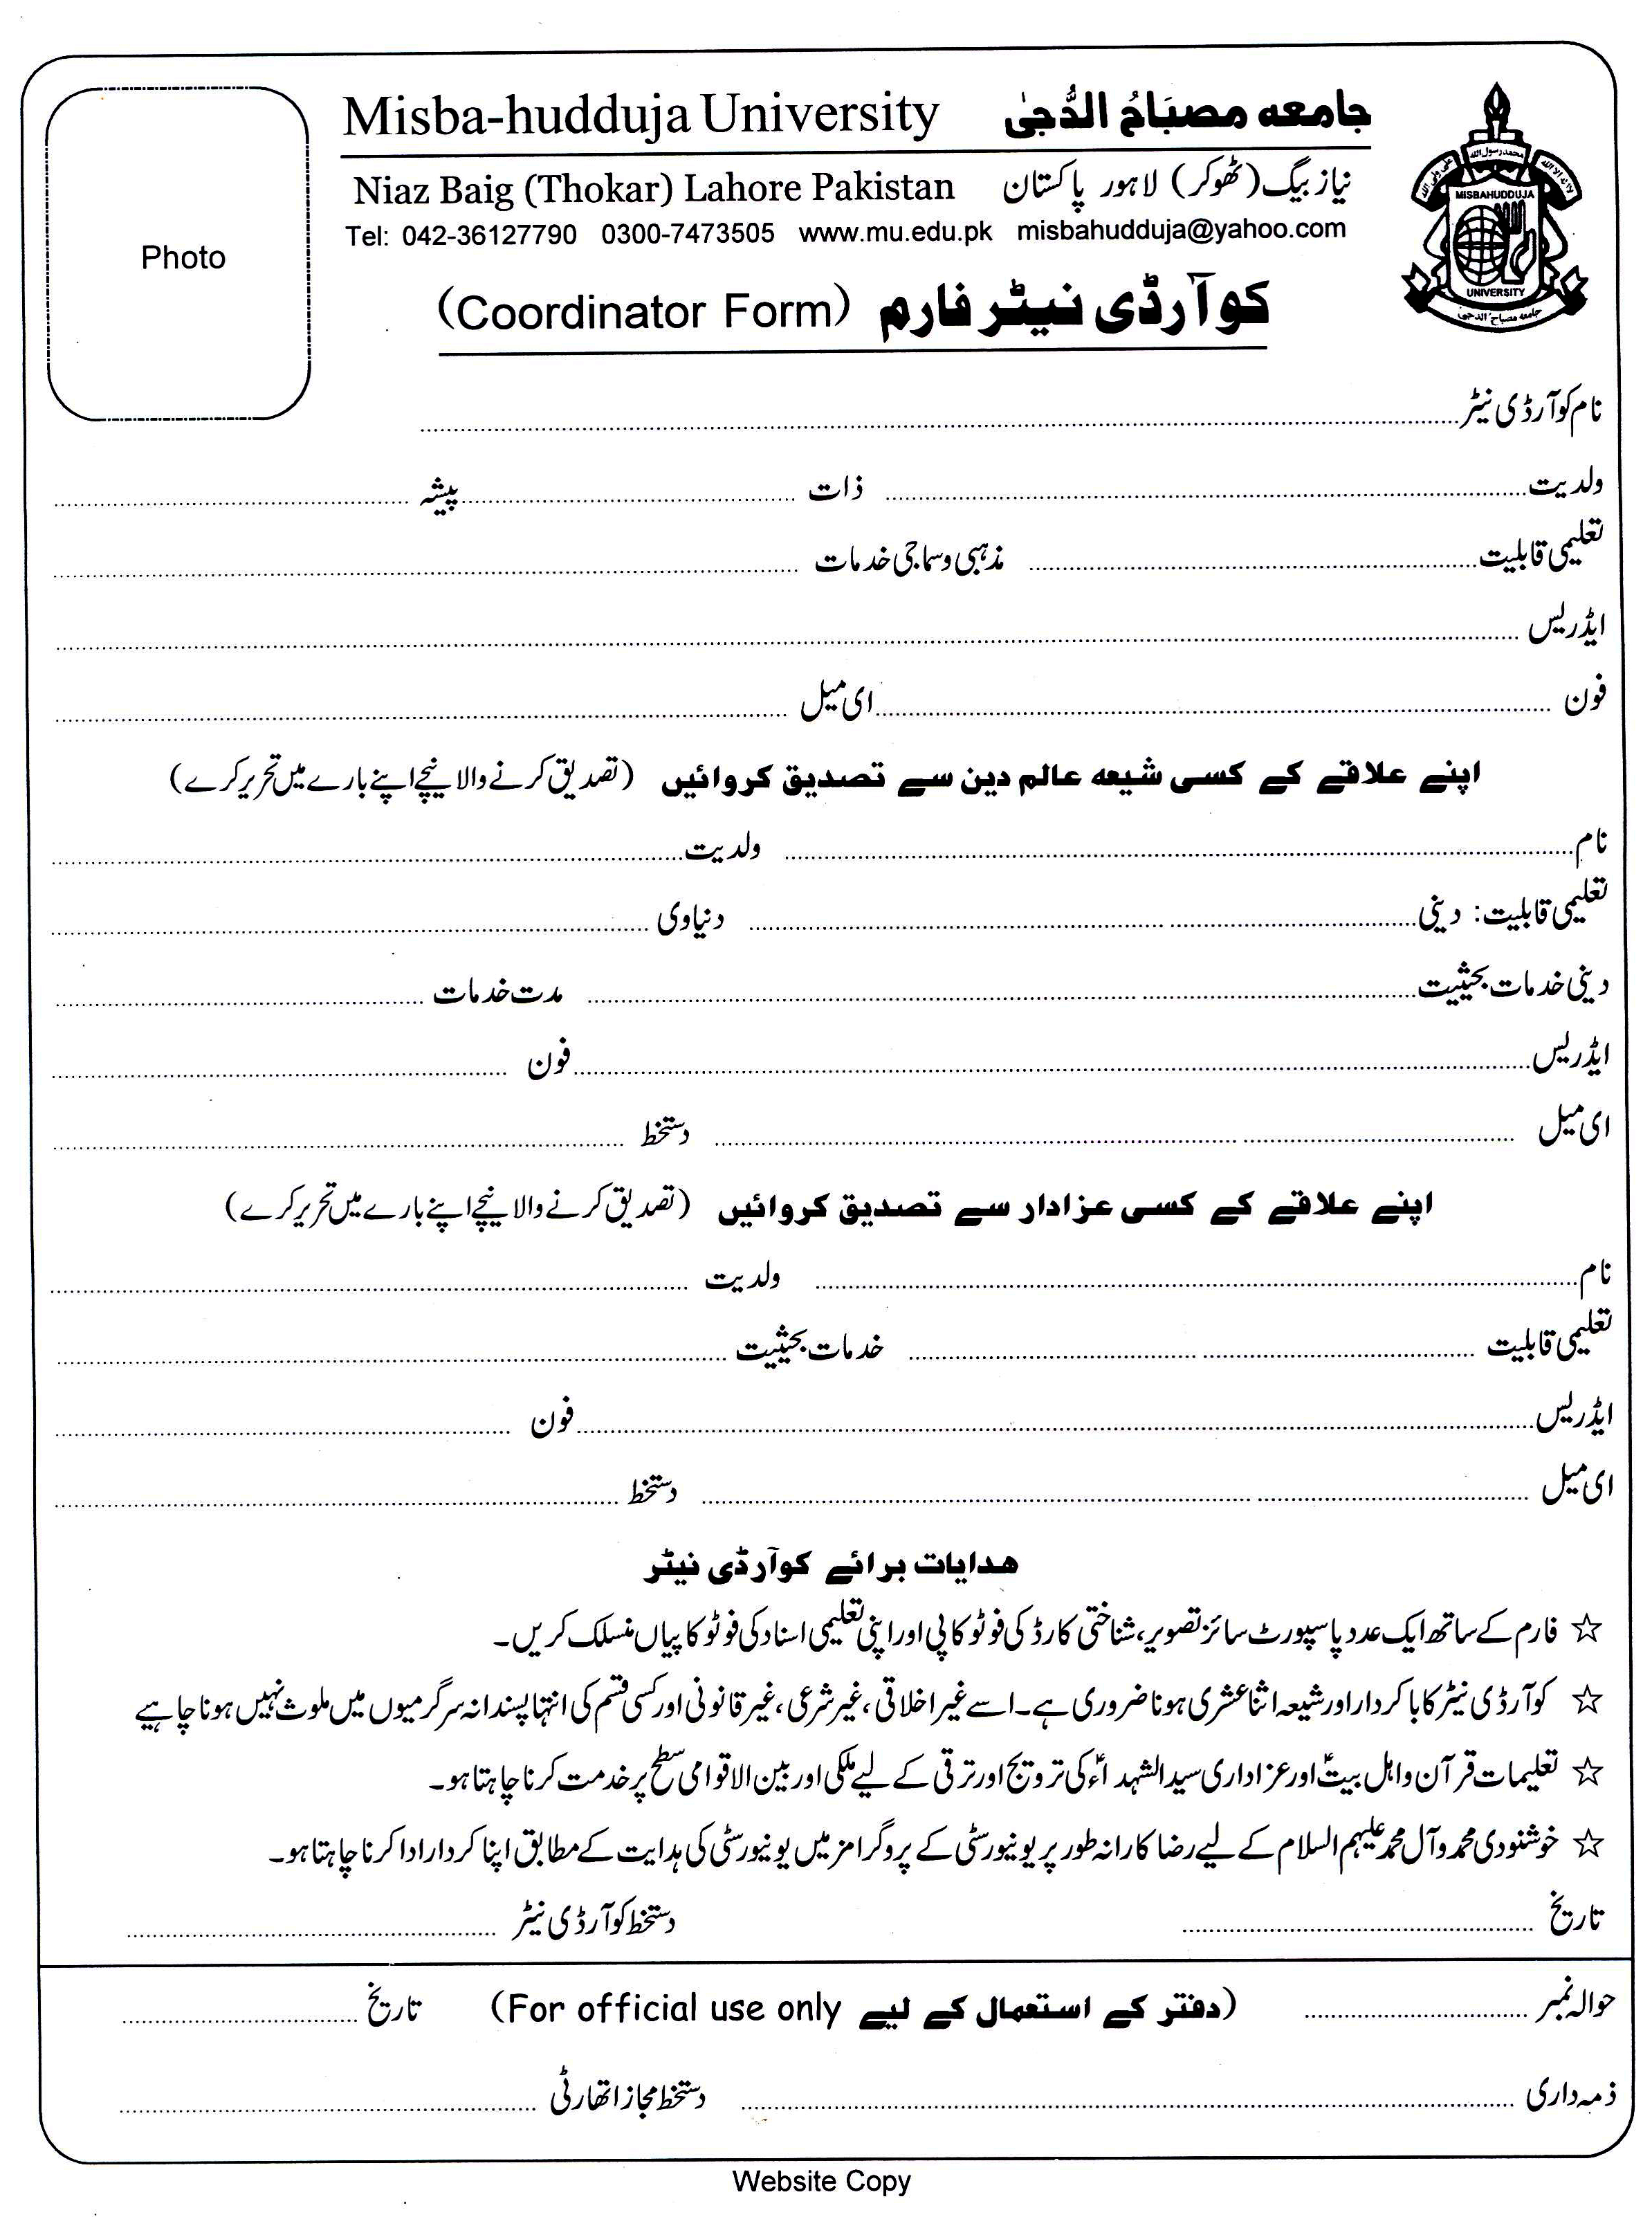 Photo
Misba-hudduja University جامعه مصبَاحُ الدُّجىٰ
Niaz Baig (Thokar) Lahore Pakistan نیاز بیگ (ٹھوکر) لاہور پاکستان
Tel: 042-36127790 0300-7473505 www.mu.edu.pk misbahudduja@yahoo.com
کوآرڈی نیٹر فارم (Coordinator Form)
لا اله الا الله محمد رسول الله علی ولی الله
MISBAHUDDUJA
UNIVERSITY
جامعه مصباح الدجی
نام کوآرڈی نیٹر
ولدیت ذات پیشہ
تعلیمی قابلیت مذہبی وسماجی خدمات
ایڈریس
فون ای میل
اپنے علاقے کے کسی شیعہ عالم دین سے تصدیق کروائیں (تصدیق کرنے والا نیچے اپنے بارے میں تحریر کرے)
نام ولدیت
تعلیمی قابلیت: دینی دنیاوی
دینی خدمات بحیثیت مدت خدمات
ایڈریس فون
ای میل دستخط
اپنے علاقے کے کسی عزادار سے تصدیق کروائیں (تصدیق کرنے والا نیچے اپنے بارے میں تحریر کرے)
نام ولدیت
تعلیمی قابلیت خدمات بحیثیت
ایڈریس فون
ای میل دستخط
هدایات برائے کوآرڈی نیٹر
☆ فارم کے ساتھ ایک عدد پاسپورٹ سائز تصویر، شناختی کارڈ کی فوٹو کاپی اور اپنی تعلیمی اسناد کی فوٹو کاپیاں منسلک کریں۔
☆ کوآرڈی نیٹر کا باکردار اور شیعہ اثنا عشری ہونا ضروری ہے۔ اسے غیر اخلاقی، غیر شرعی، غیر قانونی اور کسی قسم کی انتہا پسندانہ سرگرمیوں میں ملوث نہیں ہونا چاہیے
☆ تعلیمات قرآن واہل بیتؑ اور عزاداری سید الشہداءؑ کی ترویج اور ترقی کے لیے ملکی اور بین الاقوامی سطح پر خدمت کرنا چاہتا ہو۔
☆ خوشنودی محمد وآل محمد علیہم السلام کے لیے رضا کارانہ طور پر یونیورسٹی کے پروگرامز میں یونیورسٹی کی ہدایت کے مطابق اپنا کردار ادا کرنا چاہتا ہو۔
تاریخ دستخط کوآرڈی نیٹر
حوالہ نمبر (دفتر کے استعمال کے لیے For official use only) تاریخ
ذمہ داری دستخط مجاز اتھارٹی
Website Copy